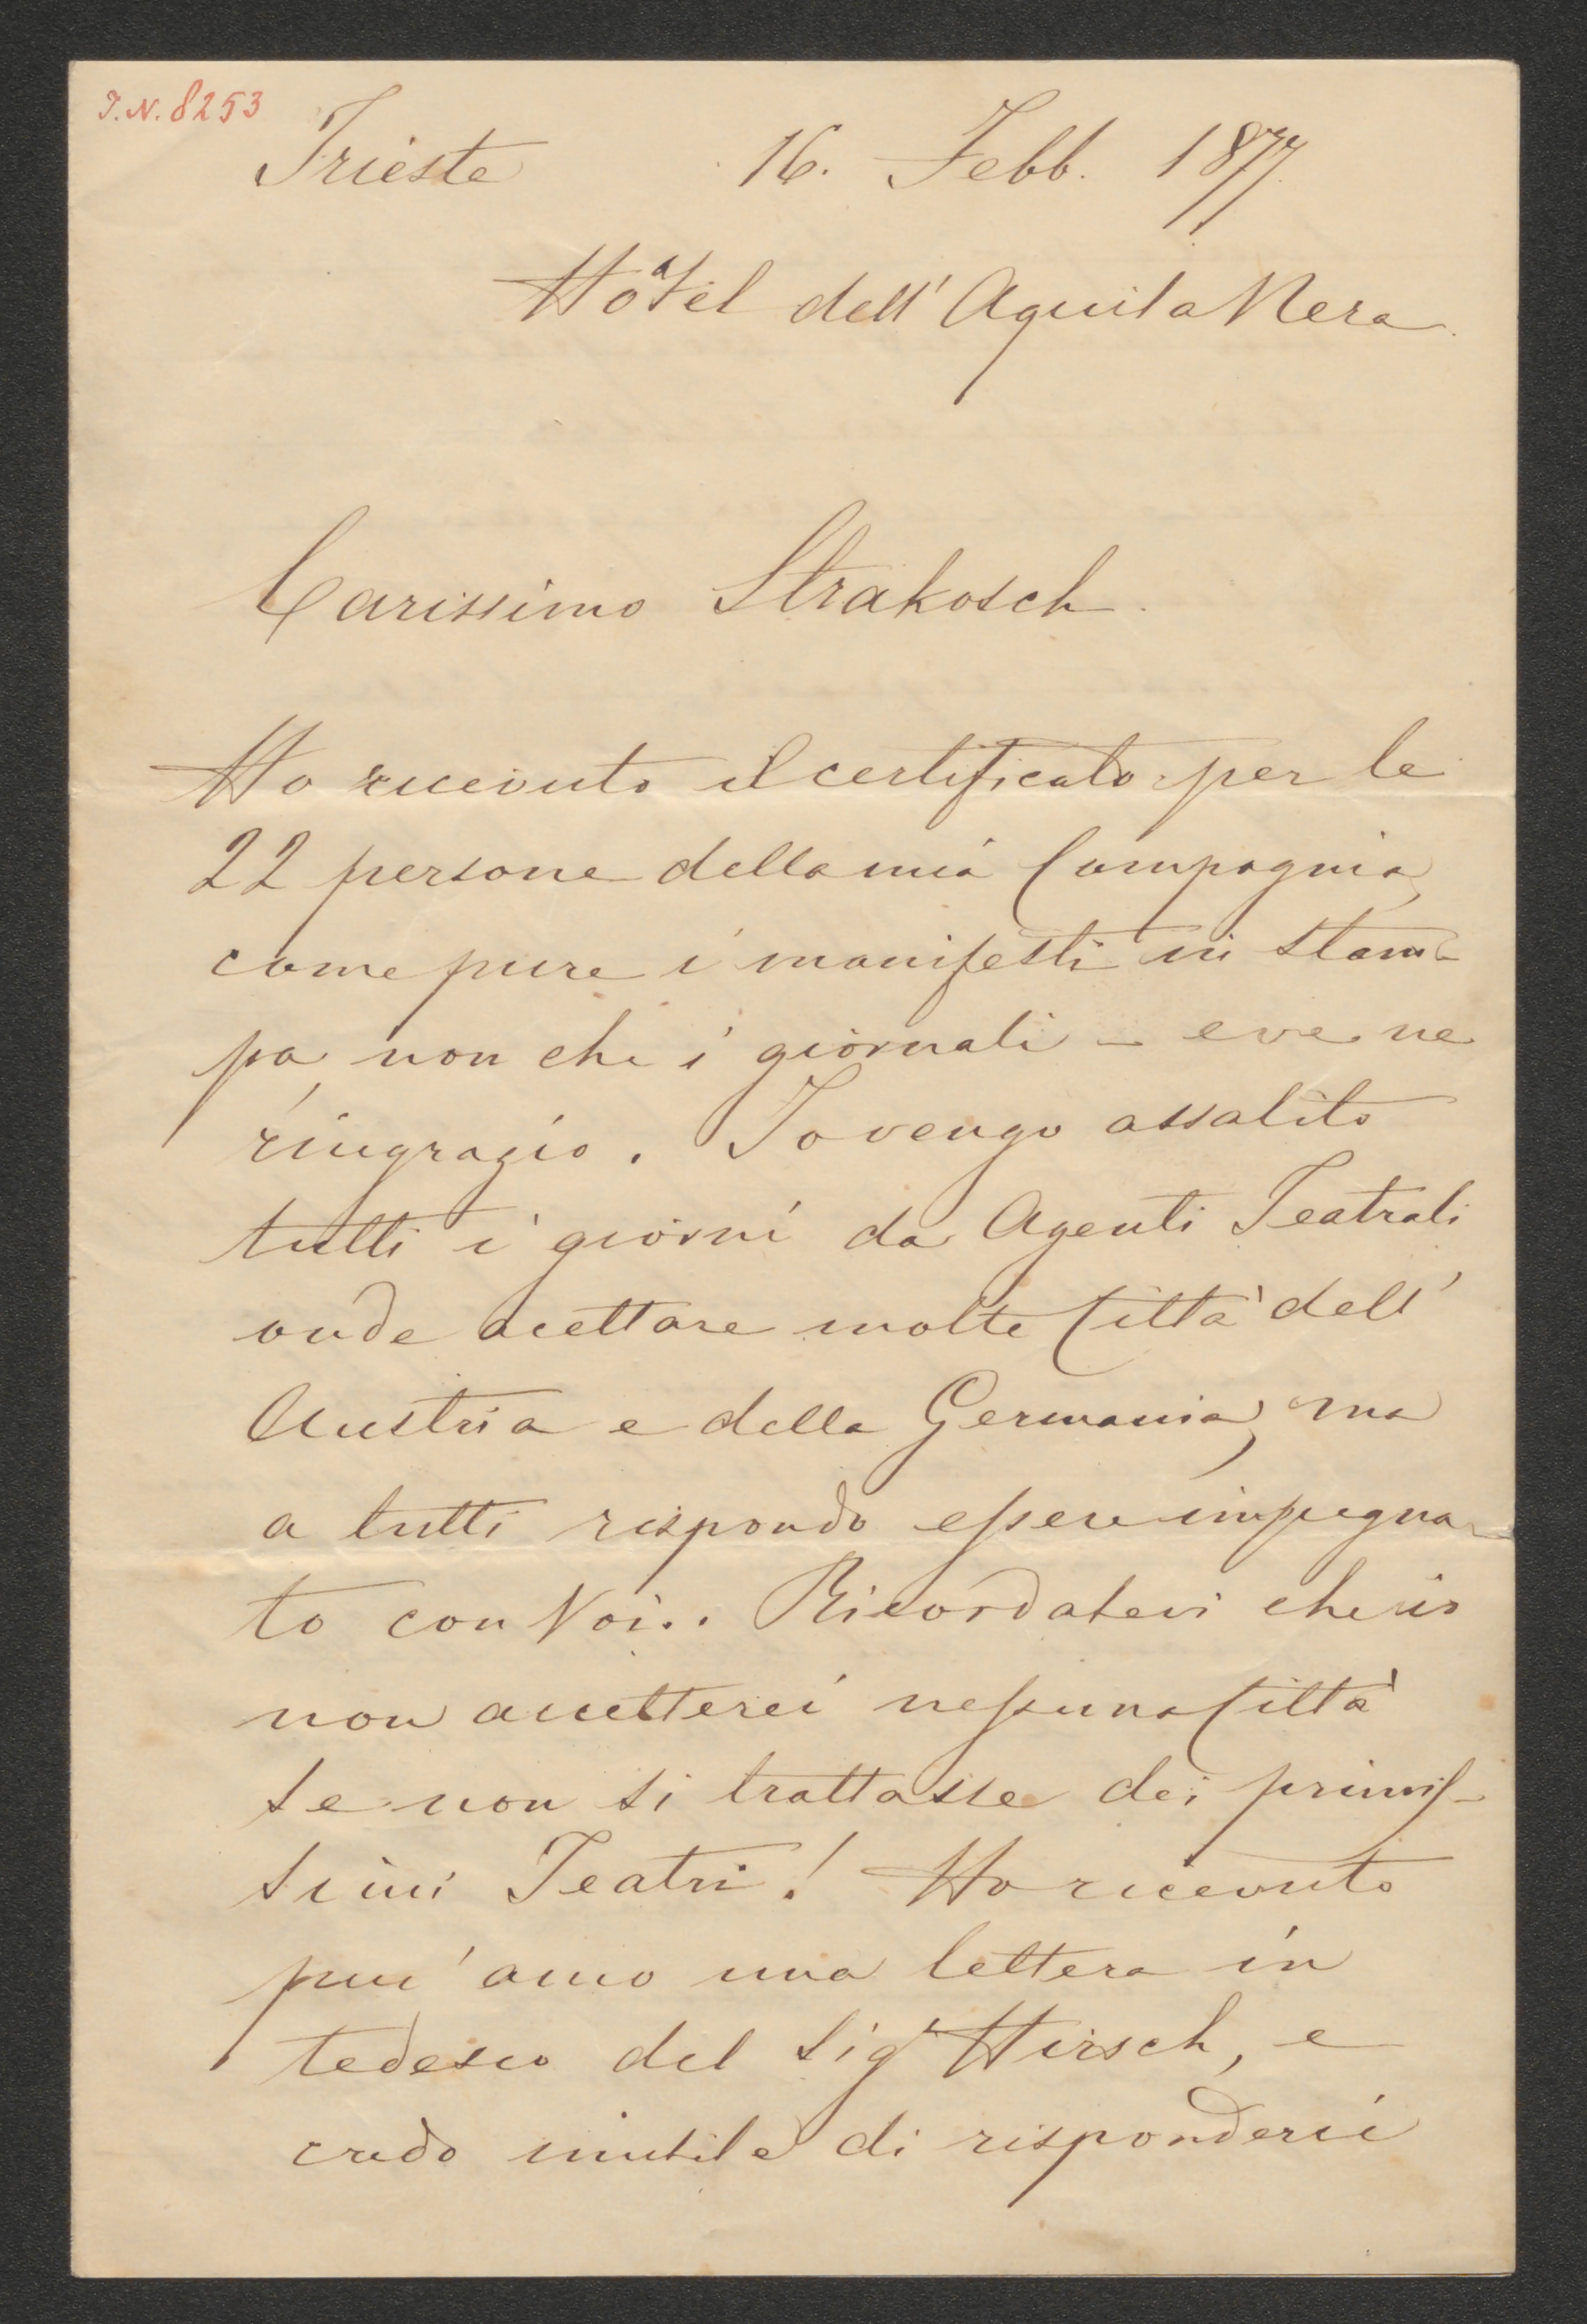 J.N. 8253
Trieste 16. Febb. 1877.
Hôtel dell' Aquila Nera.
Carissimo Strakosch.
Ho ricevuto il certificato per le
22 persone della mia Compagnia,
come pure i manifesti in stam-
pa, non che i giornali - e ve ne
ringrazio. Io vengo assalito
tutti i giorni da Agenti Teatrali
onde acettare molte Città dell'
Austria e della Germania, ma
a tutti rispondo essere impegna-
to con Voi.. Ricordatevi che io
non accetterei nessuna Città
se non si trattasse dei primis-
simi Teatri! Ho ricevuto
pur' anco una lettera in
tedesco del Sigr Hirsch, e
credo inutile di risponderci